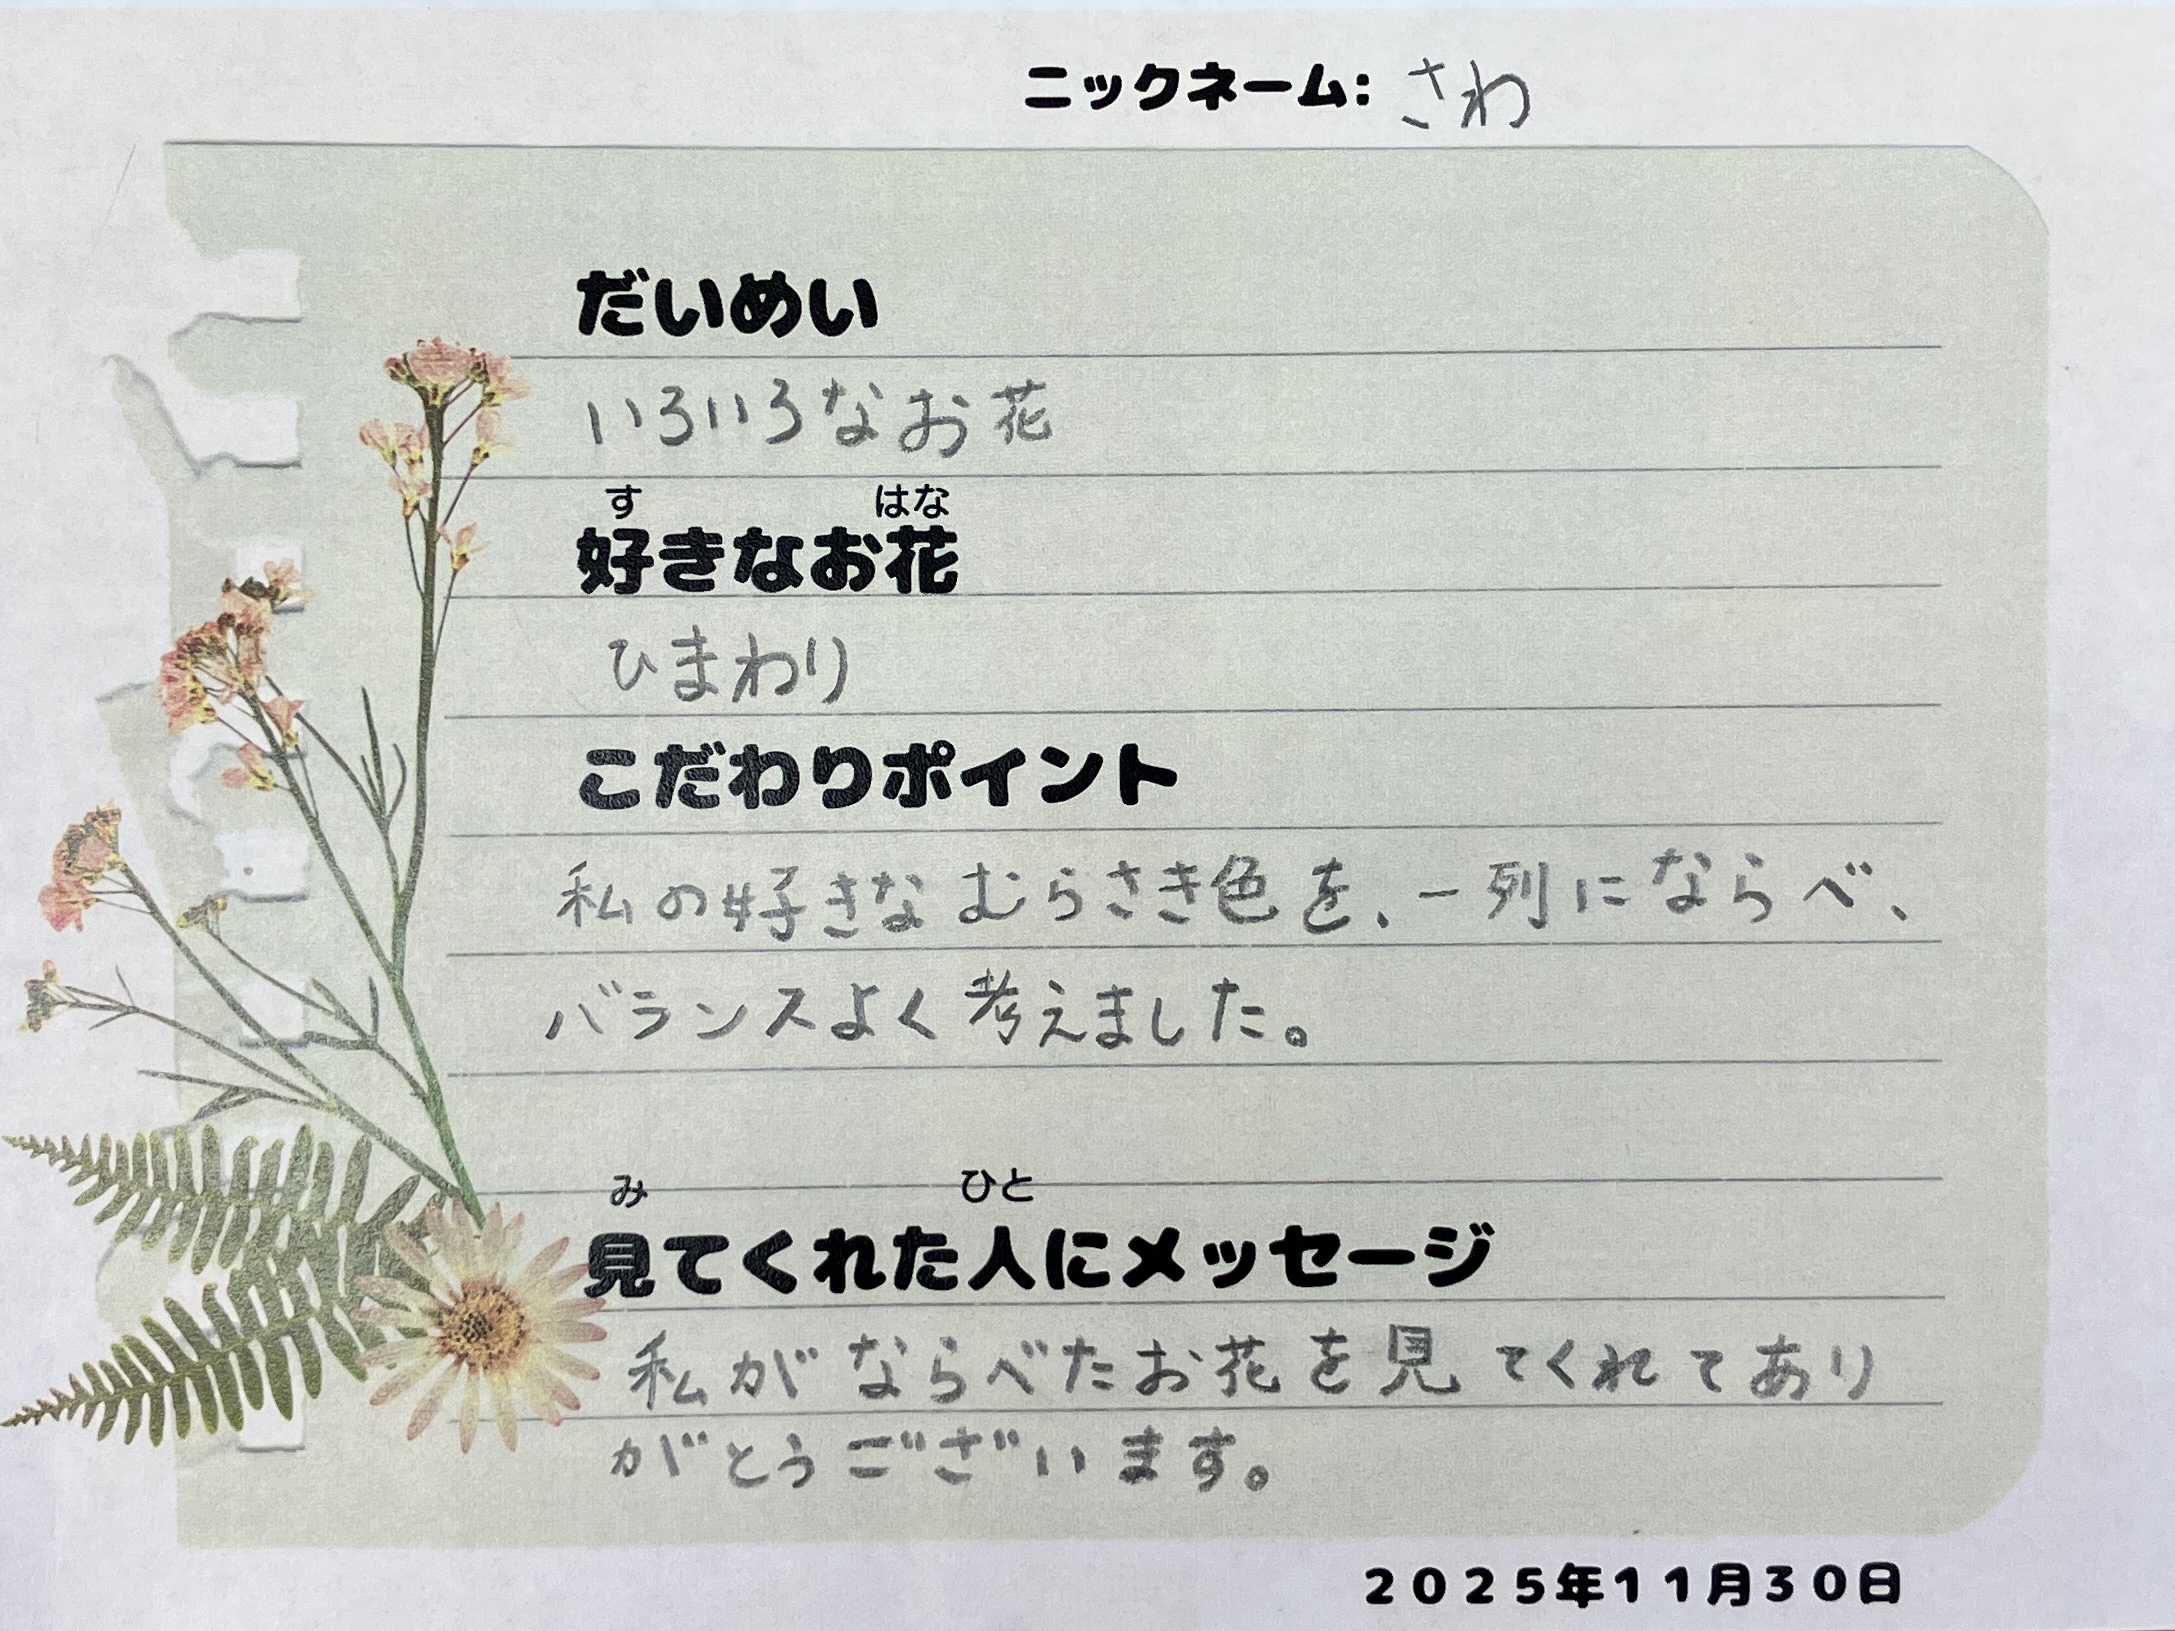 ニックネーム: さわ
だいめい
いろいろなお花
す はな
好きなお花
ひまわり
こだわりポイント
私の好きなむらさき色を、一列にならべ、
バランスよく考えました。
み ひと
見てくれた人にメッセージ
私がならべたお花を見てくれてあり
がとうございます。
2025年11月30日